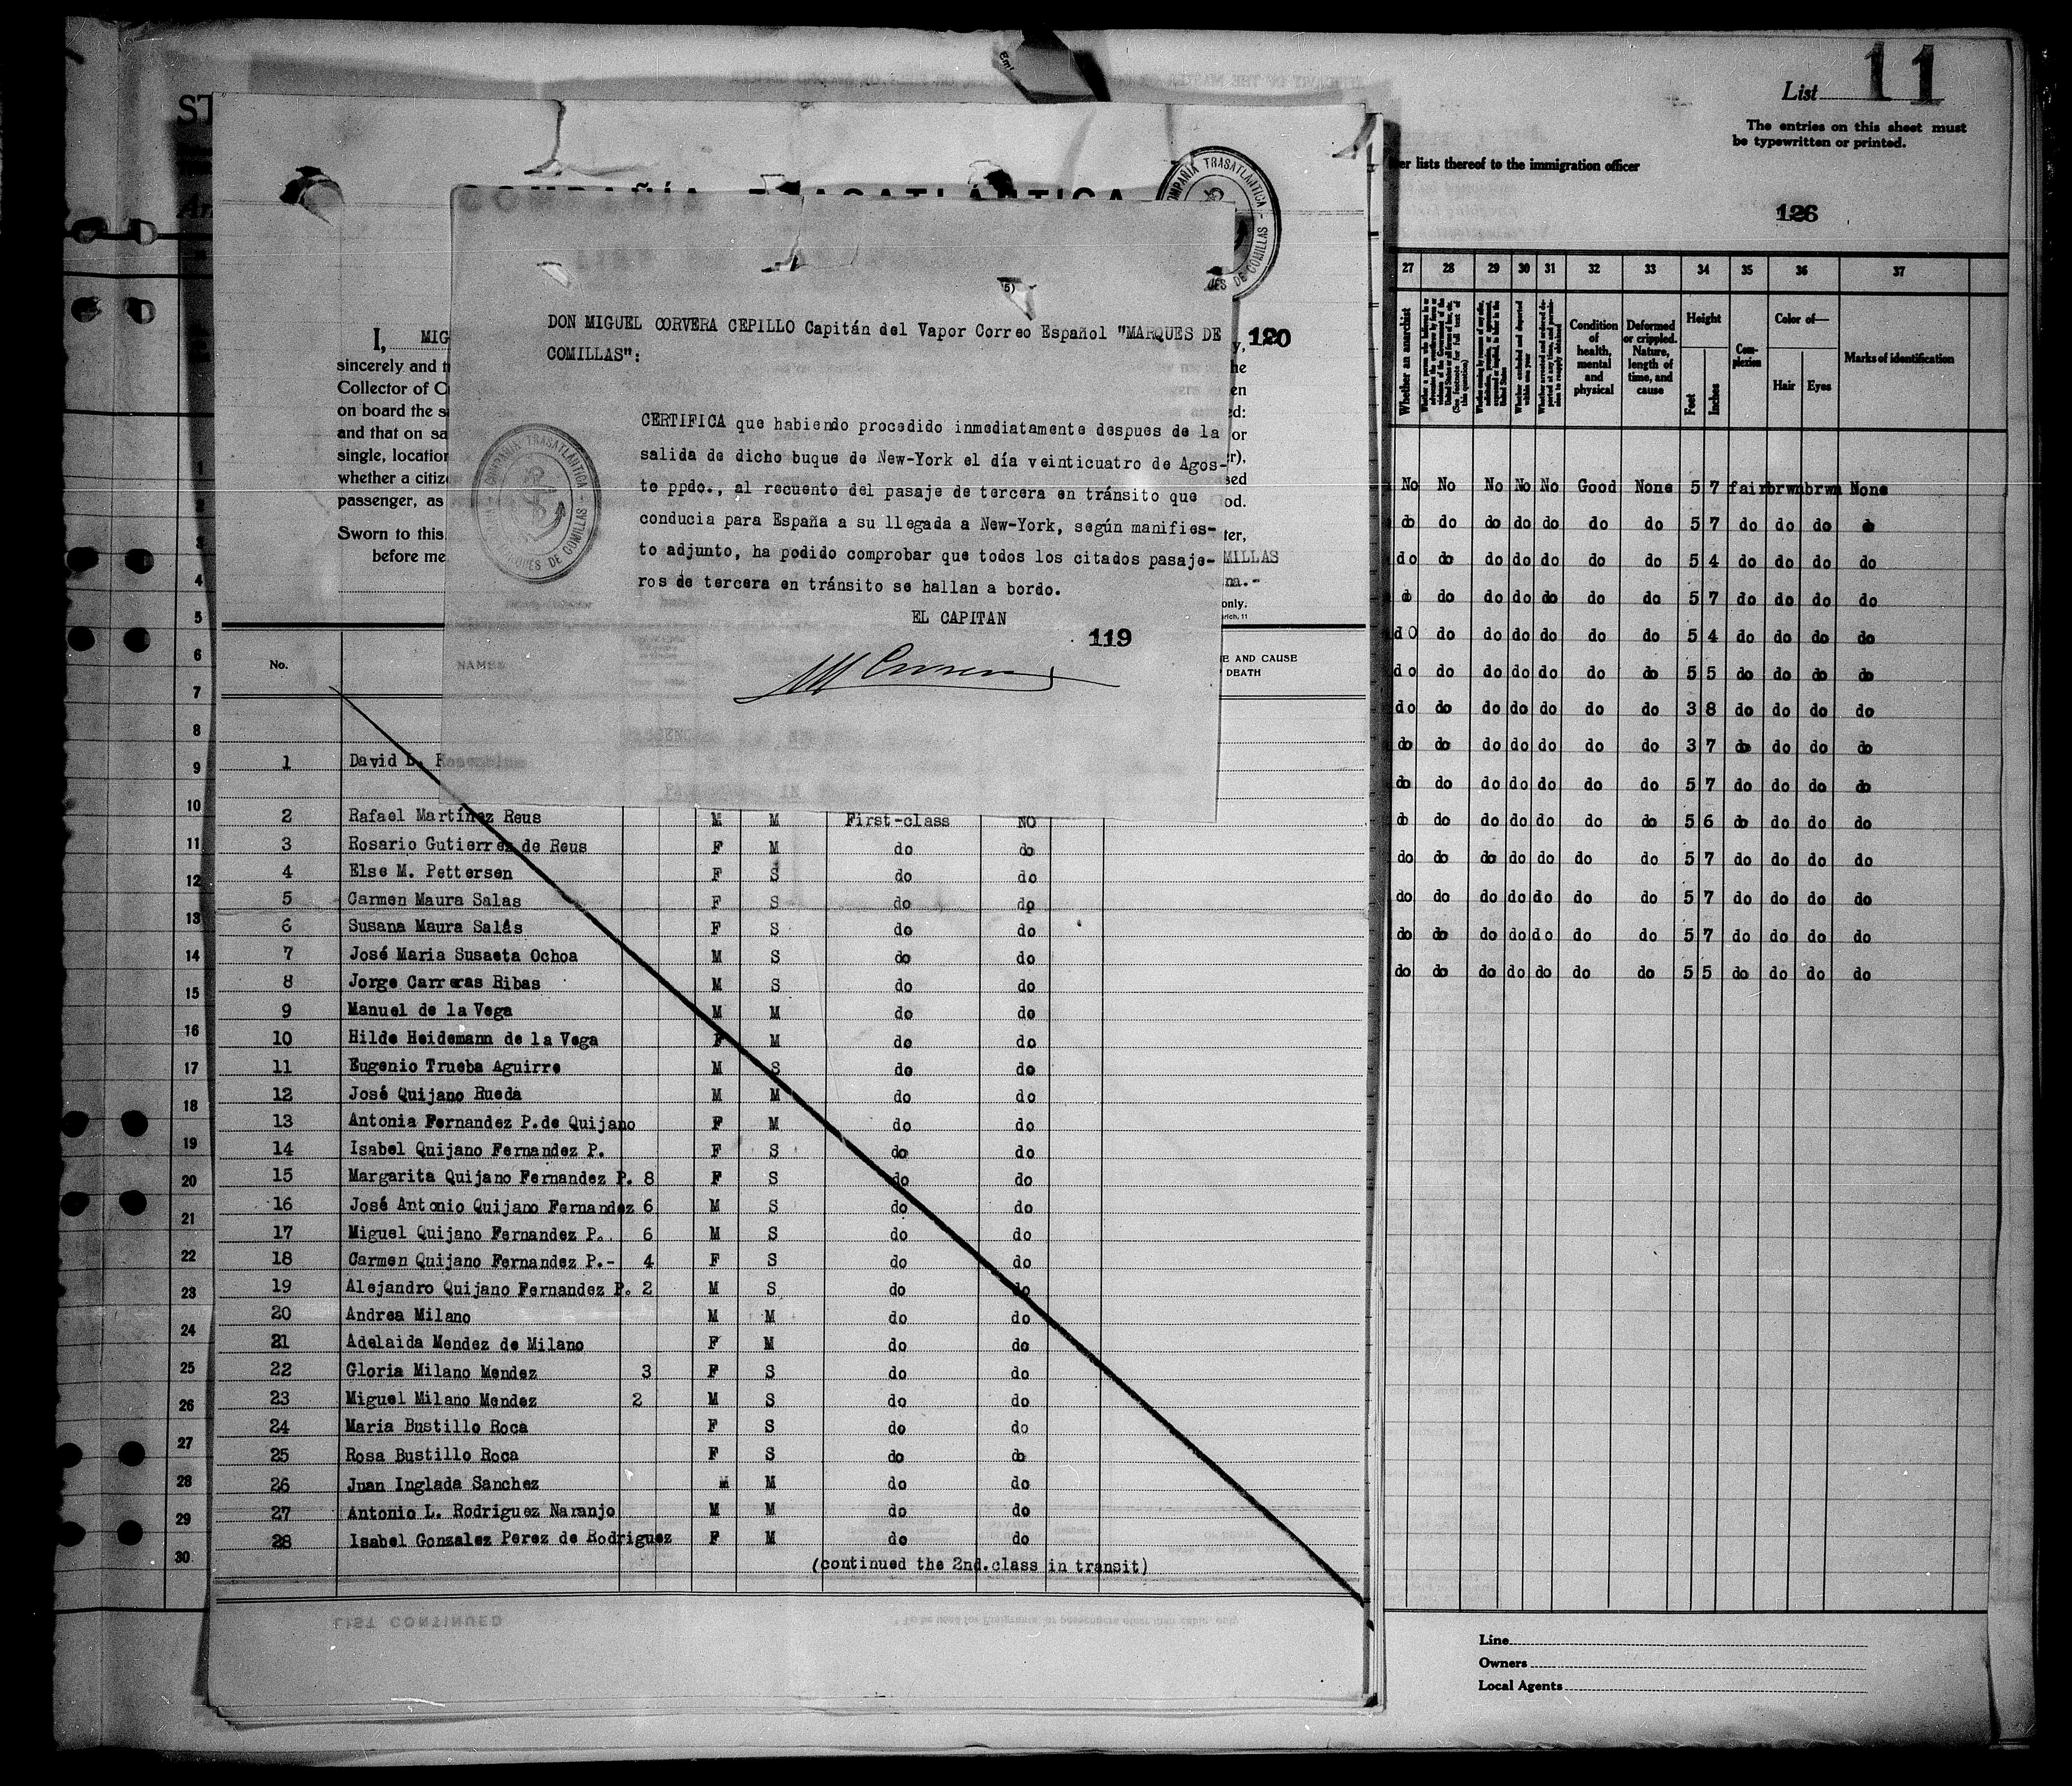 ST
List 11
The entries on this sheet must
be typewritten or printed.
er lists thereof to the immigration officer
126
COMPAÑÍA TRASATLÁNTICA
COMPAÑIA TRASATLANTICA - MARQUES DE COMILLAS -
DON MIGUEL CORVERA CEPILLO Capitán del Vapor Correo Español "MARQUES DE
COMILLAS":
120
CERTIFICA que habiendo procedido inmediatamente despues de la
salida de dicho buque de New-York el día veinticuatro de Agos-
to ppdo., al recuento del pasaje de tercera en tránsito que
conducia para España a su llegada a New-York, según manifies-
to adjunto, ha podido comprobar que todos los citados pasaje-
ros de tercera en tránsito se hallan a bordo.
EL CAPITAN
119
COMPAÑIA TRASATLANTICA - MARQUES DE COMILLAS -
I, MIG
sincerely and t
Collector of C
on board the s
and that on sa
single, location
whether a citize
passenger, as
Sworn to this
before me
y,
he
en
ed:
or
r),
sed
od.
ter,
MILLAS
na.-
only.
No.
NAMES
E AND CAUSE
DEATH
1 David L. Rosenblum
2 Rafael Martínez Reus M M First-class NO
3 Rosario Gutierrez de Reus F M do do
4 Else M. Pettersen F S do do
5 Carmen Maura Salas F S do do
6 Susana Maura Salas F S do do
7 José Maria Susaeta Ochoa M S do do
8 Jorge Carreras Ribas M S do do
9 Manuel de la Vega M M do do
10 Hilde Heidemann de la Vega F M do do
11 Eugenio Trueba Aguirre M S do do
12 José Quijano Rueda M M do do
13 Antonia Fernandez P.de Quijano F M do do
14 Isabel Quijano Fernandez P. F S do do
15 Margarita Quijano Fernandez P. 8 F S do do
16 José Antonio Quijano Fernandez 6 M S do do
17 Miguel Quijano Fernandez P. 6 M S do do
18 Carmen Quijano Fernandez P.- 4 F S do do
19 Alejandro Quijano Fernandez P. 2 M S do do
20 Andrea Milano M M do do
21 Adelaida Mendez de Milano F M do do
22 Gloria Milano Mendez 3 F S do do
23 Miguel Milano Mendez 2 M S do do
24 Maria Bustillo Roca F S do do
25 Rosa Bustillo Roca F S do do
26 Juan Inglada Sanchez M M do do
27 Antonio L. Rodriguez Naranjo M M do do
28 Isabel Gonzalez Perez de Rodriguez F M do do
(continued the 2nd.class in transit)
LIST CONTINUED
1
2
3
4
5
6
7
8
9
10
11
12
13
14
15
16
17
18
19
20
21
22
23
24
25
26
27
28
29
30
27 28 29 30 31 32 33 34 35 36 37
Whether an anarchist
Condition of health, mental and physical
Deformed or crippled. Nature, length of time, and cause
Height
Feet Inches
Complexion
Color of—
Hair Eyes
Marks of identification
No No No No No Good None 5 7 fair brwn brwn None
do do do do do do do 5 7 do do do do
do do do do do do do 5 4 do do do do
do do do do do do do 5 7 do do do do
do do do do do do do 5 4 do do do do
do do do do do do do 5 5 do do do do
do do do do do do do 3 8 do do do do
do do do do do do do 3 7 do do do do
do do do do do do do 5 7 do do do do
do do do do do do do 5 6 do do do do
do do do do do do do 5 7 do do do do
do do do do do do do 5 7 do do do do
do do do do do do do 5 7 do do do do
do do do do do do do 5 5 do do do do
Line
Owners
Local Agents